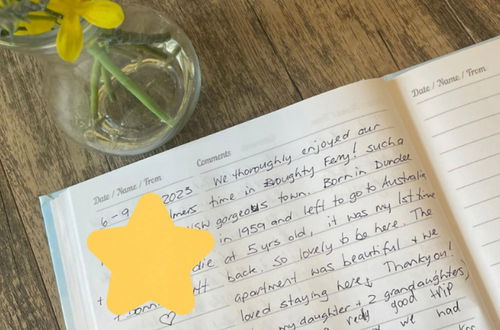 Date / Name / From
Comments
Date / Name / From
6-9 2023
We thoroughly enjoyed our
time in Doughty Ferry! such a
gorgeous town. Born in Dundee
in 1959 and left to go to Australia
at 5 yrs old, it was my 1st time
back. So lovely to be here. The
apartment was beautiful + we
loved staying here. Thankyou!
my daughter + 2 grandaughters,
good trip
we had